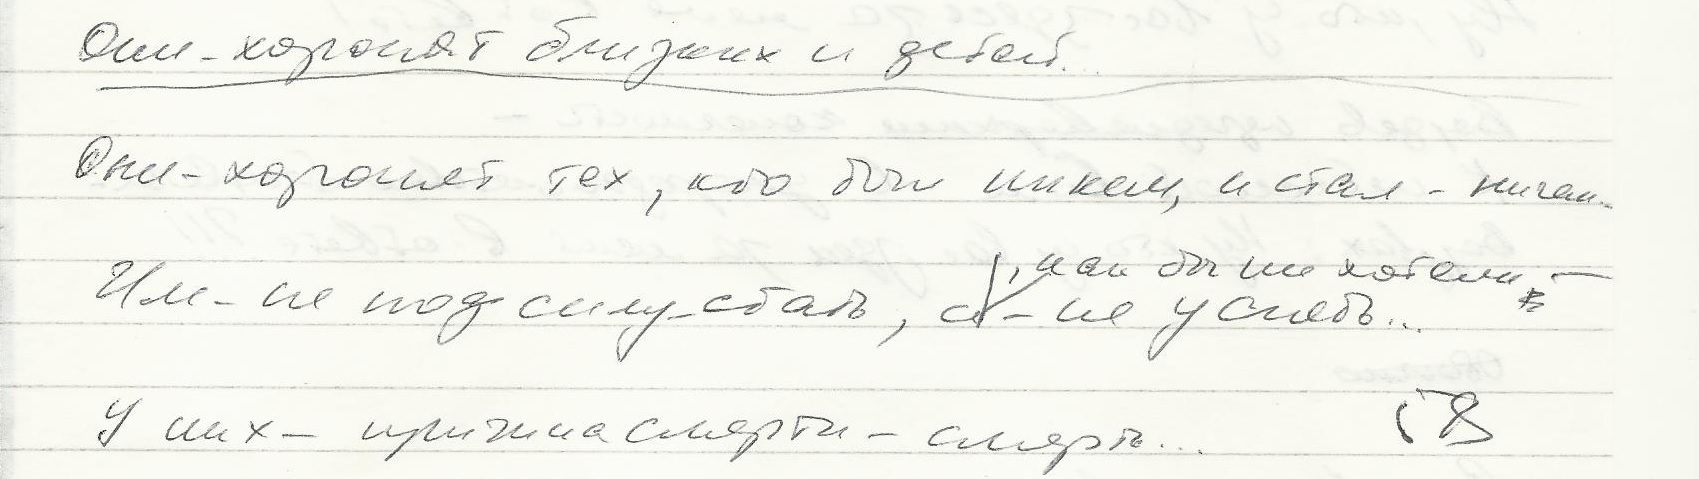 Они - хоронят близких и детей...
Они - хоронят тех, кто был никем, и стал - ничем...
, как бы ни хотели -
Им - не под силу - спать, а - не уснеть...
У них - причина смерти - смерть...